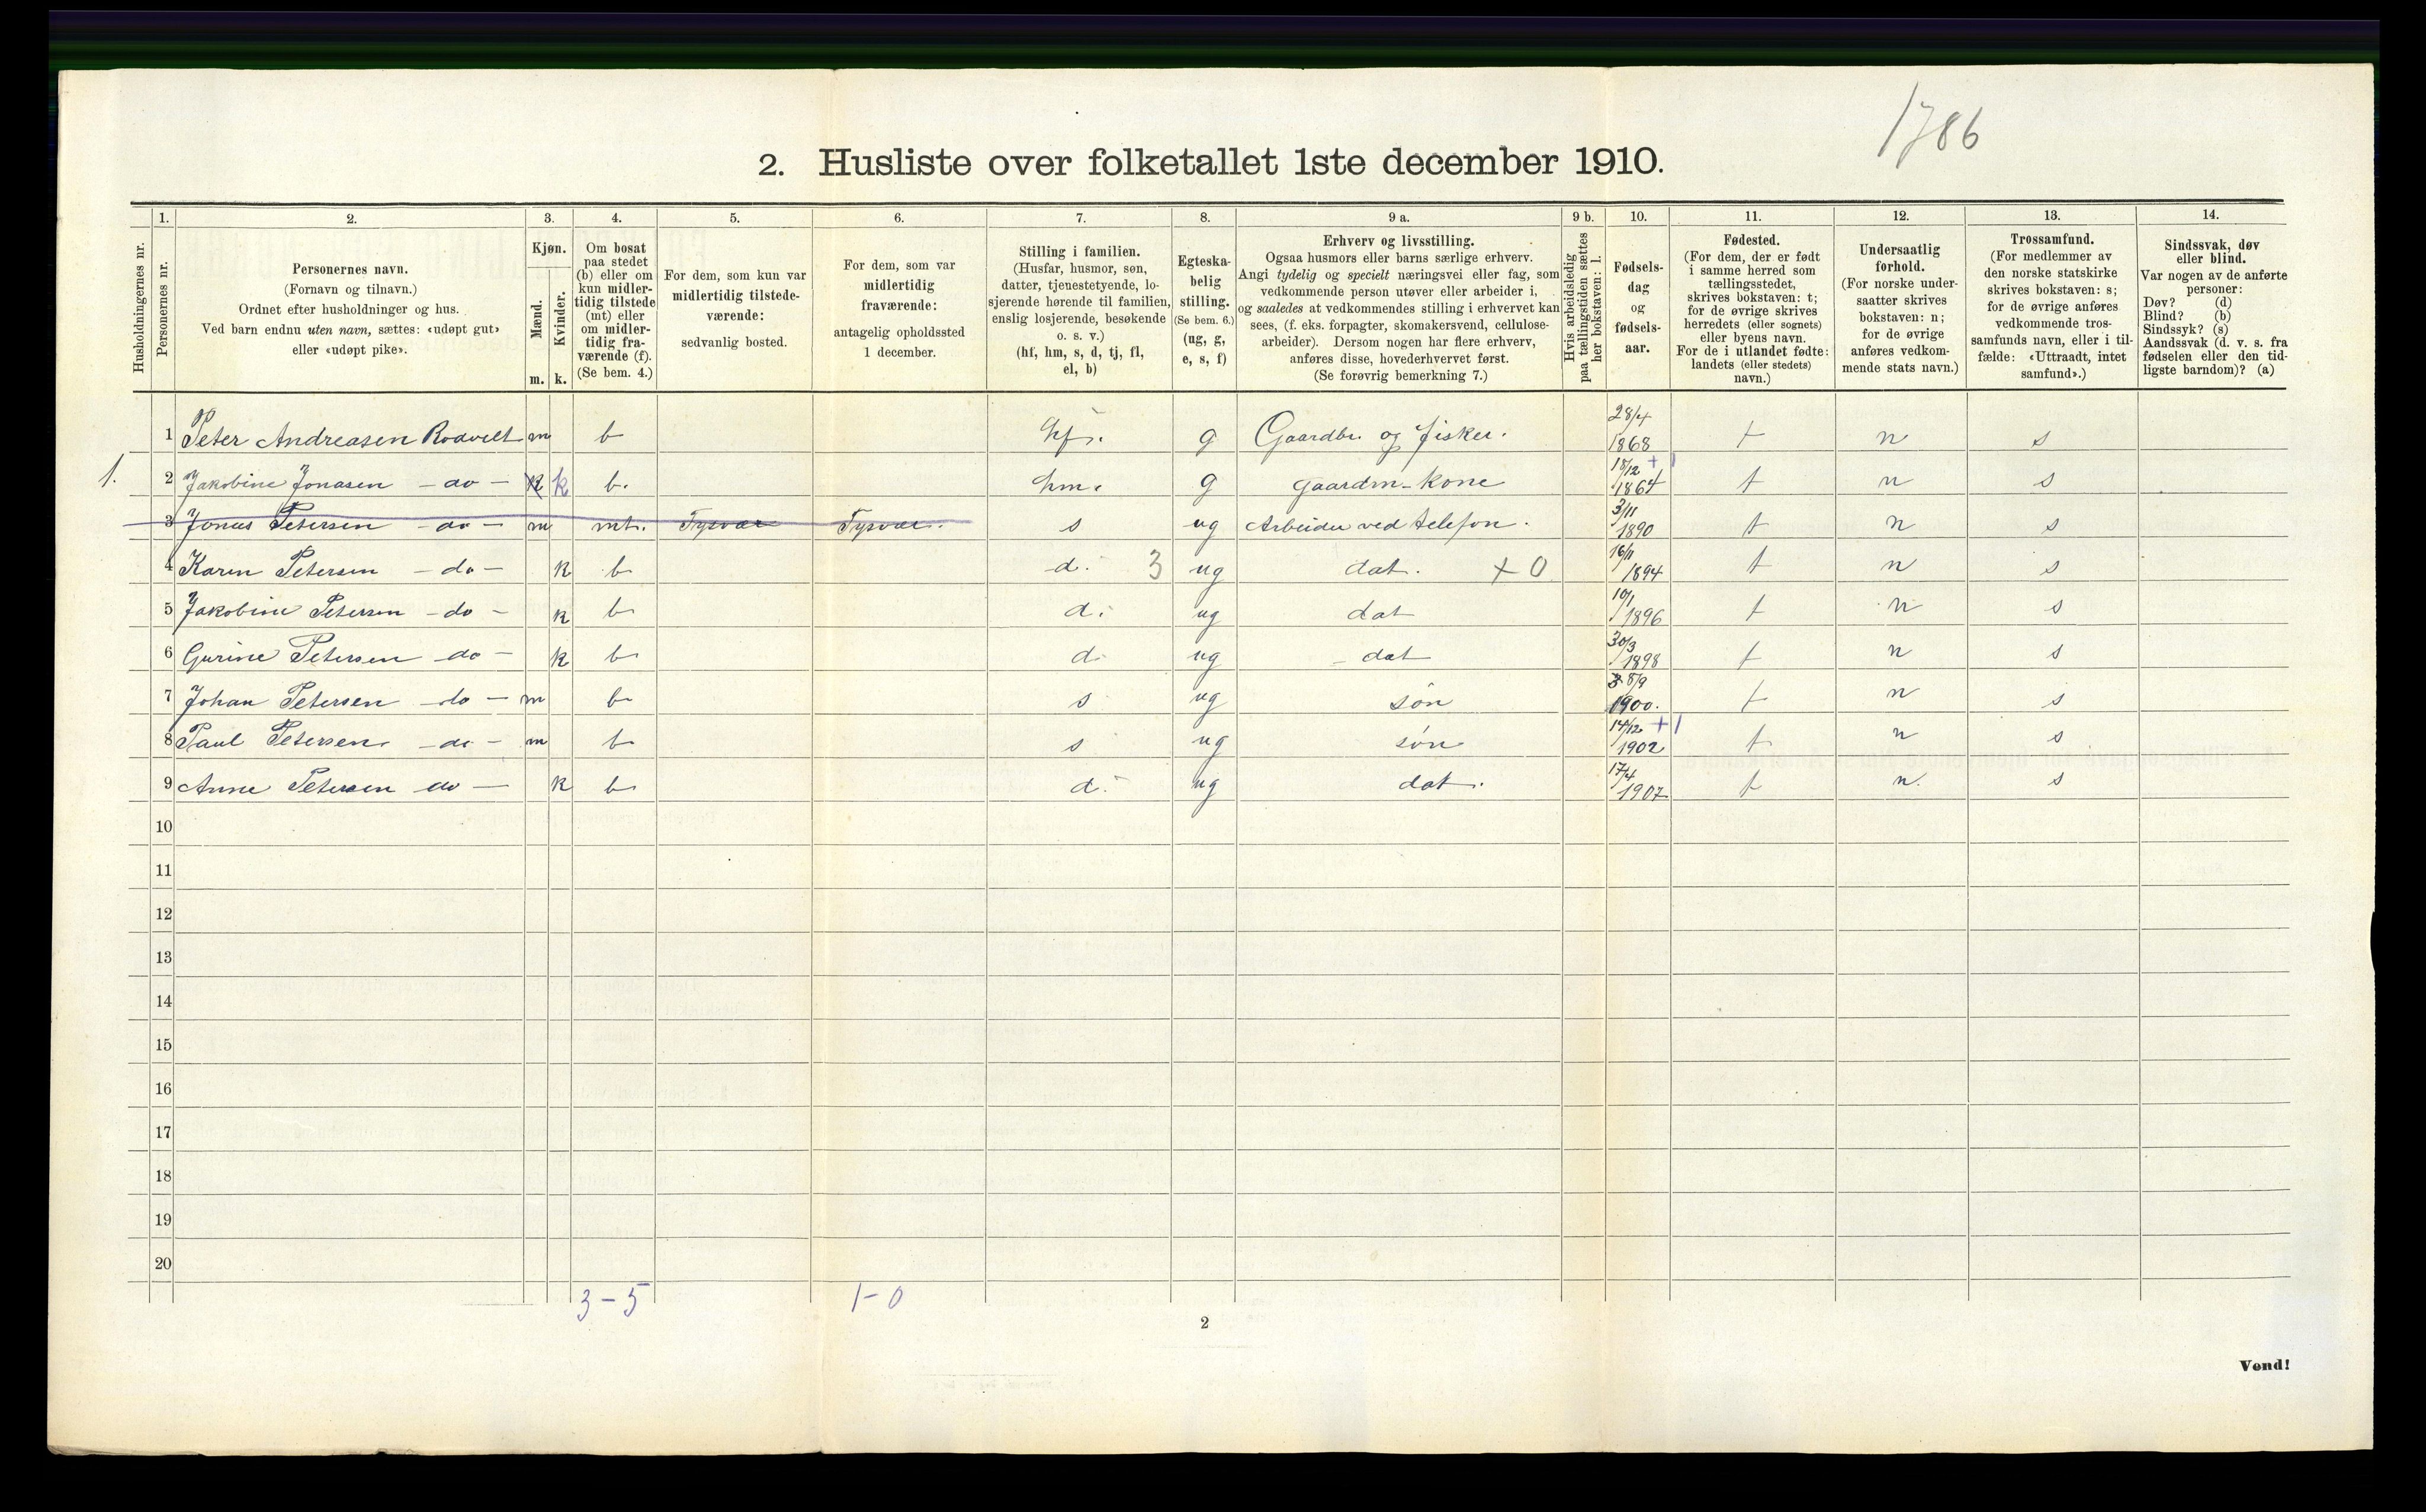 1786
2. Husliste over folketallet 1ste december 1910.
1. 2. 3. 4. 5. 6. 7. 8. 9 a. 9 b. 10. 11. 12. 13. 14.
Husholdningernes nr.
Personernes nr.
Personernes navn.
(Fornavn og tilnavn.)
Ordnet efter husholdninger og hus.
Ved barn endnu uten navn, sættes: «udøpt gut»
eller «udøpt pike».
Kjøn.
Mænd.
Kvinder.
m. k.
Om bosat
paa stedet
(b) eller om
kun midler-
tidig tilstede
(mt) eller
om midler-
tidig fra-
værende (f).
(Se bem. 4.)
For dem, som kun var
midlertidig tilstede-
værende:
sedvanlig bosted.
For dem, som var
midlertidig
fraværende:
antagelig opholdssted
1 december.
Stilling i familien.
(Husfar, husmor, søn,
datter, tjenestetyende, lo-
sjerende hørende til familien,
enslig losjerende, besøkende
o. s. v.)
(hf, hm, s, d, tj, fl,
el, b)
Egteska-
belig
stilling.
(Se bem. 6.)
(ug, g,
e, s, f)
Erhverv og livsstilling.
Ogsaa husmors eller barns særlige erhverv.
Angi tydelig og specielt næringsvei eller fag, som
vedkommende person utøver eller arbeider i,
og saaledes at vedkommendes stilling i erhvervet kan
sees, (f. eks. forpagter, skomakersvend, cellulose-
arbeider). Dersom nogen har flere erhverv,
anføres disse, hovederhvervet først.
(Se forøvrig bemerkning 7.)
Hvis arbeidsledig
paa tællingstiden sættes
her bokstaven: l.
Fødsels-
dag
og
fødsels-
aar.
Fødested.
(For dem, der er født
i samme herred som
tællingsstedet,
skrives bokstaven: t;
for de øvrige skrives
herredets (eller sognets)
eller byens navn.
For de i utlandet fødte:
landets (eller stedets)
navn.)
Undersaatlig
forhold.
(For norske under-
saatter skrives
bokstaven: n;
for de øvrige
anføres vedkom-
mende stats navn.)
Trossamfund.
(For medlemmer av
den norske statskirke
skrives bokstaven: s;
for de øvrige anføres
vedkommende tros-
samfunds navn, eller i til-
fælde: «Uttraadt, intet
samfund».)
Sindssvak, døv
eller blind.
Var nogen av de anførte
personer:
Døv? (d)
Blind? (b)
Sindssyk? (s)
Aandssvak (d. v. s. fra
fødselen eller den tid-
ligste barndom)? (a)
1 Peter Andreasen Rodvelt m b hf. g Gaardbr. og fisker. 28/4 1868 t n s
1. 2 Jakobine Jonasen - do - k k b. hm. g gaardm-kone 18/12 +1 1864 t n s
3 Jonas Petersen - do - m mt. Tysvær Tysvær. s ug Arbeider ved telefon. 3/11 1890 t n s
4 Karen Petersen - do - k b d. 3 ug dat. +0 16/11 1894 t n s
5 Jakobine Petersen - do - k b d. ug dat 10/1 1896 t n s
6 Gurine Petersen do - k b d. ug dat 30/3 1898 t n s
7 Johan Petersen do - m b s ug søn 8/9 1900. t n s
8 Paul Petersen - do - m b s ug søn 14/12 +1 1902 t n s
9 Anne Petersen do - k b d. ug dat. 17/4 1907 t n. s
10
11
12
13
14
15
16
17
18
19
20
3 - 5 1 - 0
2
Vend!